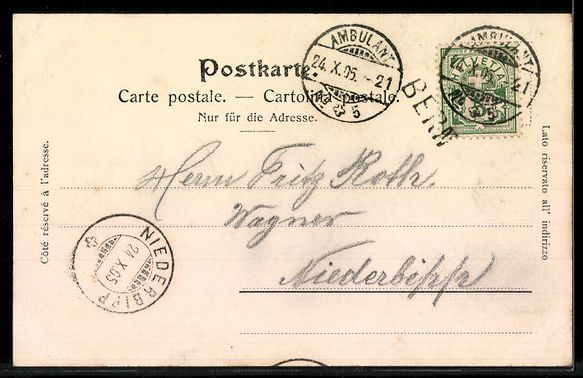 Postkarte.
Carte postale. — Cartolina postale.
Nur für die Adresse.
AMBULANT
24.X.05.-21
5
BERN
AMBULANT
21
5
HELVETIA
Côté réservé à l'adresse.
Lato riservato all' indirizzo
Herrn Fritz Roth.
Wagner
Niederbipp
NIEDERBIPP
24 X 05